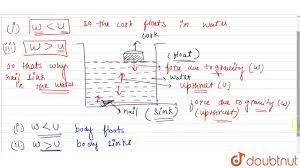 (i) W < U so the cork floats in water
(ii) W > U
so thats why
nail sink
in the water
cork
(float)
force due to gravity (W)
water
upthrust (U)
nail (sink)
force due to gravity (W)
(upthrust)
(i) W < U body floats
(ii) W > U body sinks
doubtnut